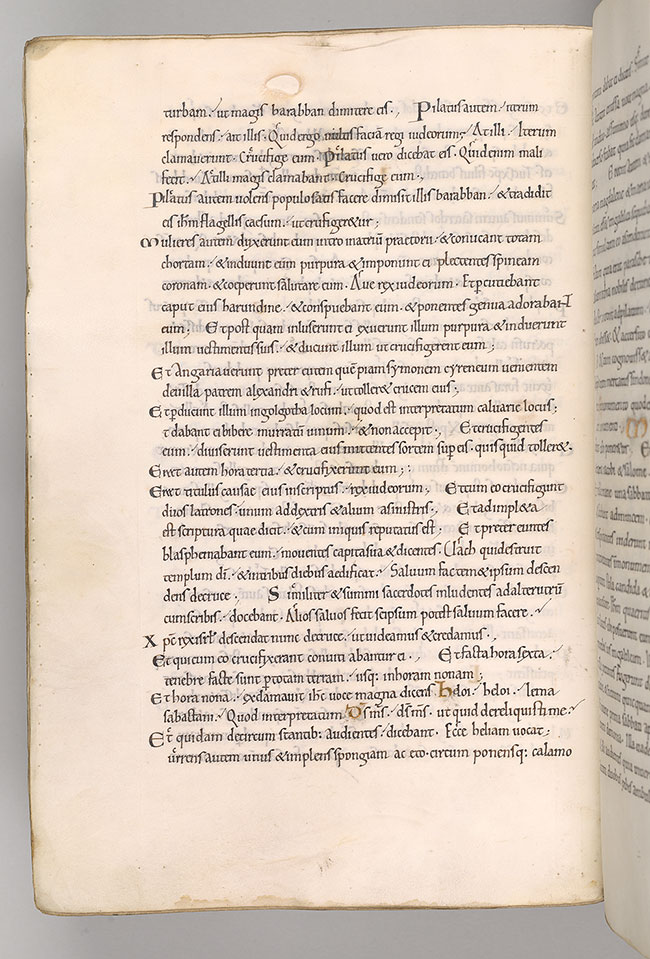 turbam. ut magis barabban dimitteret eis., Pilatus autem iterum
respondens. ait illis. Quid ergo uultis faciā regi iudeorum; At illi. Iterum
clamauerunt. Crucifige eum. Pilatus uero dicebat eis. Quid enim mali
fecit. At illi magis clamabant. Crucifige eum.,
Pilatus autem uolens populo satis facere dimisit illis barabban. & tradidit
eis ihm flagellis caesum. ut crucifiger&ur;
Milites autem duxerunt eum intro in atriū praetorii. & conuocant totam
chortam. & induunt eum purpura & imponunt ei plectentes spineam
coronam. & coeperunt salutare eum. Aue rex iudeorum. Et percutiebant
caput eius harundine. & conspuebant eum. & ponentes genua adorabant
eum; Et post quam inluserunt ei exuerunt illum purpura & induerunt
illum uestimentis suis. & ducunt illum ut crucifigerent eum;
Et angariauerunt preter euntem quempiam symonem cyreneum uenientem
de uilla patrem alexandri & rufi. ut toller& crucem eius;
Et pducunt illum in golgotha locum. quod est interpretatum caluarie locus;
& dabant ei bibere murratū uinum. & non accepit., Et crucifigentes
eum. diuiserunt uestimenta eius mittentes sortem sup eis. quis quid toller&.
Erat autem hora tertia. & crucifixerunt eum;
Erat titulus causae eius inscriptus. rex iudeorum., Et cum eo crucifigunt
duos latrones. unum a dextris & alium a sinistris; Et adimpl&a
est scriptura quae dicit. & cum iniquis reputatus est; Et preter euntes
blasphemabant eum. mouentes capita sua & dicentes. Uach qui destruit
templum di. & in tribus diebus aedificat. Saluum fac tem&ipsum descen
dens de cruce; Similiter & summi sacerdotes inludentes ad alterutrū
cum scribis. dicebant. Alios saluos fecit seipsum potest saluum facere.
Xpc rex isrl descendat nunc de cruce. ut uideamus & credamus.,
Et qui cum eo crucifixi erant conuiciabantur ei., Et facta hora sexta.
tenebre facte sunt p totam terram. usq: in horam nonam;
Et hora nona. exclamauit ihs uoce magna dicens heloi. heloi. lema
sabactani. Quod interpretatum ds ms. ds ms. ut quid dereliquisti me.
Et quidam de circum stantib: audientes. dicebant. Ecce heliam uocat;
Currens autem unus & implens spongiam aceto. circum ponensq: calamo